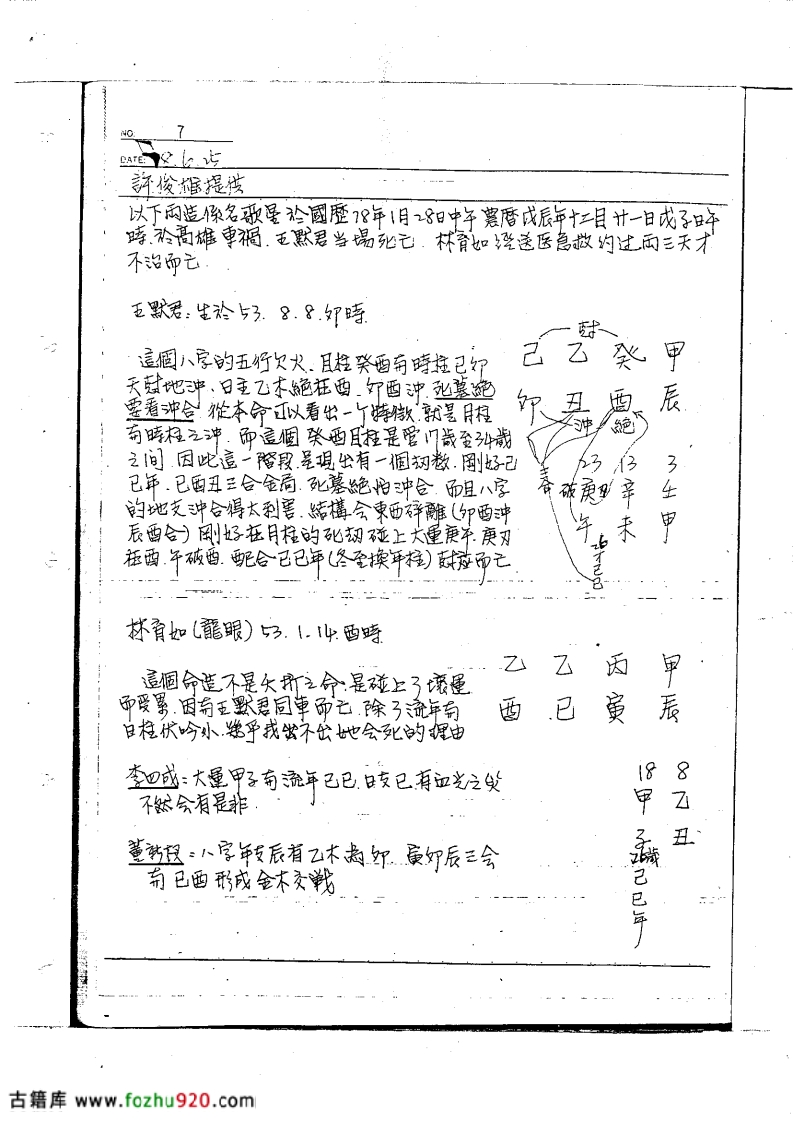 NO. 7
DATE: 78.6.25
許俊雄提供
以下兩造係名歌星於國曆78年1月28日中午農曆戊辰年十二月廿一日戊子日午
時.於高雄車禍.王默君当場死亡.林育如经送医急救約过兩三天才
不治而亡
王默君:生於53.8.8.卯時
這個八字的五行欠火.月柱癸酉有時柱己卯
天尅地沖.日主乙木絕在酉.卯酉沖.死墓絕
要看沖合.從本命可以看出一个特徵.就是月柱
有時柱之沖.而這個癸酉月柱是管17歲至34歲
之间.因此這一階段.呈現出有一個劫數.剛好己
巳年.巳酉丑三合金局.死墓絕怕沖合.而且八字
的地支沖合得太利害.結構会東西碎離(卯酉沖
辰酉合)剛好在月柱的死劫碰上大運庚午.庚刃
在酉.午破酉.配合己巳年(冬至換年柱)尅應而亡
尅
己 乙 癸 甲
卯 丑 酉 辰
沖 絕
23 13 3
破 庚 辛 壬
午 未 申
26才己巳
林育如(龍眼)53.1.14.酉時
這個命造不是夭折之命.是碰上了壞運
而受累.因有王默君同車而亡.除了流年有
日柱伏吟外.幾乎找出不出她会死的理由
乙 乙 丙 甲
酉 巳 寅 辰
李四成:大運甲子有流年己巳.日支巳.有血光之災
不然会有是非
18 8
甲 乙
子 丑
26歲
己
巳
年
八字年支辰有乙木為卯.寅卯辰三会
有巳酉形成金木交戰
古籍库 www.fozhu920.com